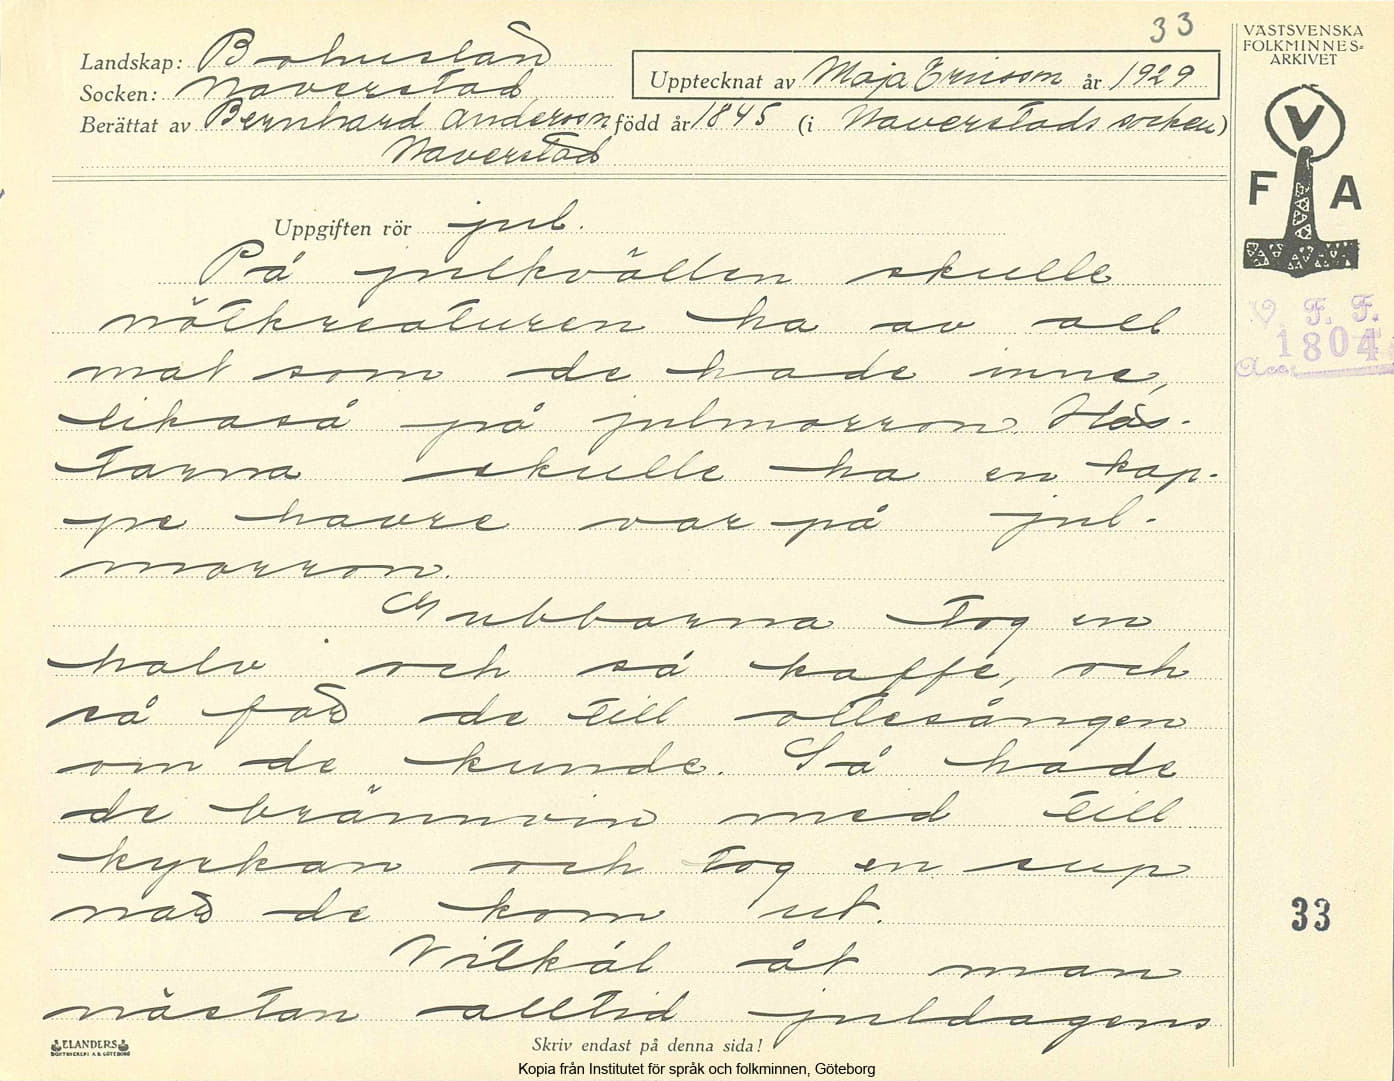 33
VÄSTSVENSKA
FOLKMINNES=
ARKIVET
Landskap: Bohuslän
Upptecknat av Maja Ericson år 1929
Socken: Naverstad
Berättat av Bernhard Anderson född år 1845 (i Naverstads socken)
Naverstad
V
F A
Uppgiften rör jul.
På julkvällen skulle
nötkreaturen ha av all
mat som de hade inne,
likaså på julmorron. Häs-
tarna skulle ha en kap-
pe havre var på jul-
morron.
Gubbarna tog en
halv och så kaffe, och
så for de till ottesången
om de kunde. Så hade
de brännvin med till
kyrkan och tog en sup
när de kom ut.
Vitkål åt man
nästan alltid juldagens
V. F. F.
1804
Acc.
33
ELANDERS
BOKTRYCKERI A.B. GÖTEBORG
Skriv endast på denna sida!
Kopia från Institutet för språk och folkminnen, Göteborg